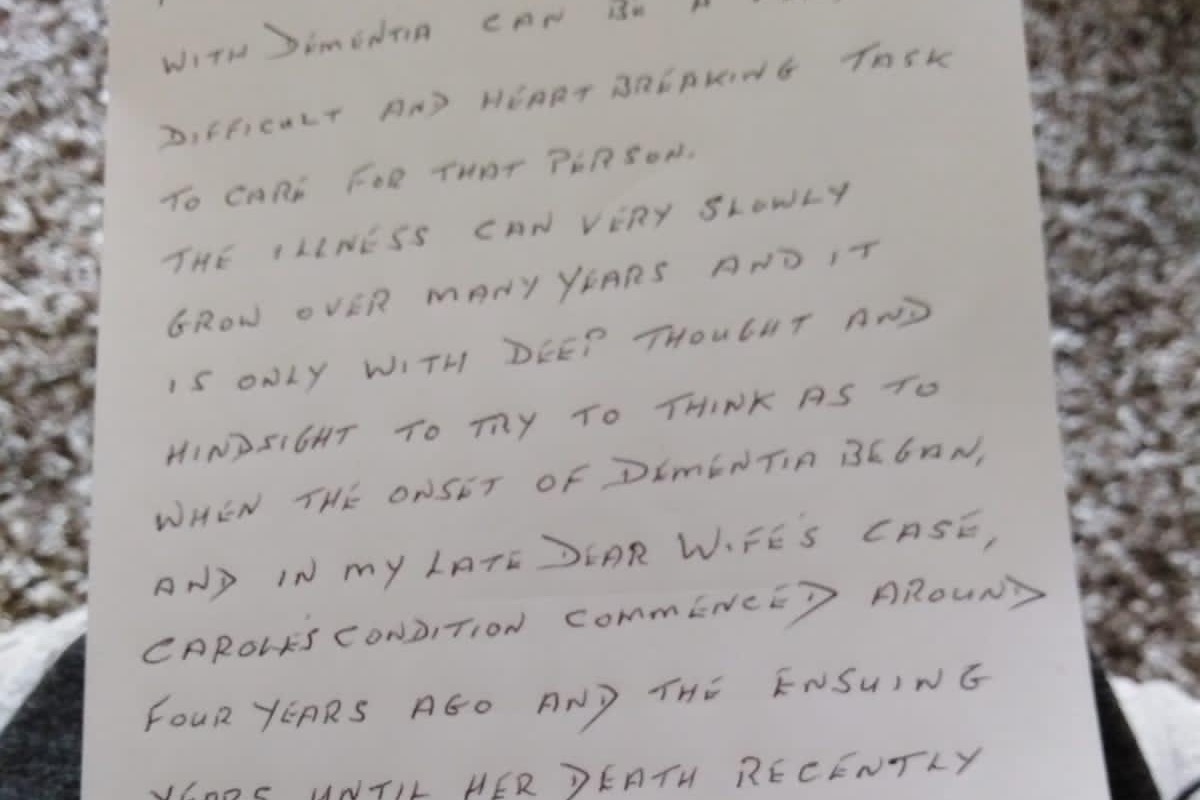 WITH DEMENTIA CAN BE A
DIFFICULT AND HEART BREAKING TASK
TO CARE FOR THAT PERSON.
THE ILLNESS CAN VERY SLOWLY
GROW OVER MANY YEARS AND IT
IS ONLY WITH DEEP THOUGHT AND
HINDSIGHT TO TRY TO THINK AS TO
WHEN THE ONSET OF DEMENTIA BEGAN,
AND IN MY LATE DEAR WIFE'S CASE,
CAROLE'S CONDITION COMMENCED AROUND
FOUR YEARS AGO AND THE ENSUING
YEARS UNTIL HER DEATH RECENTLY